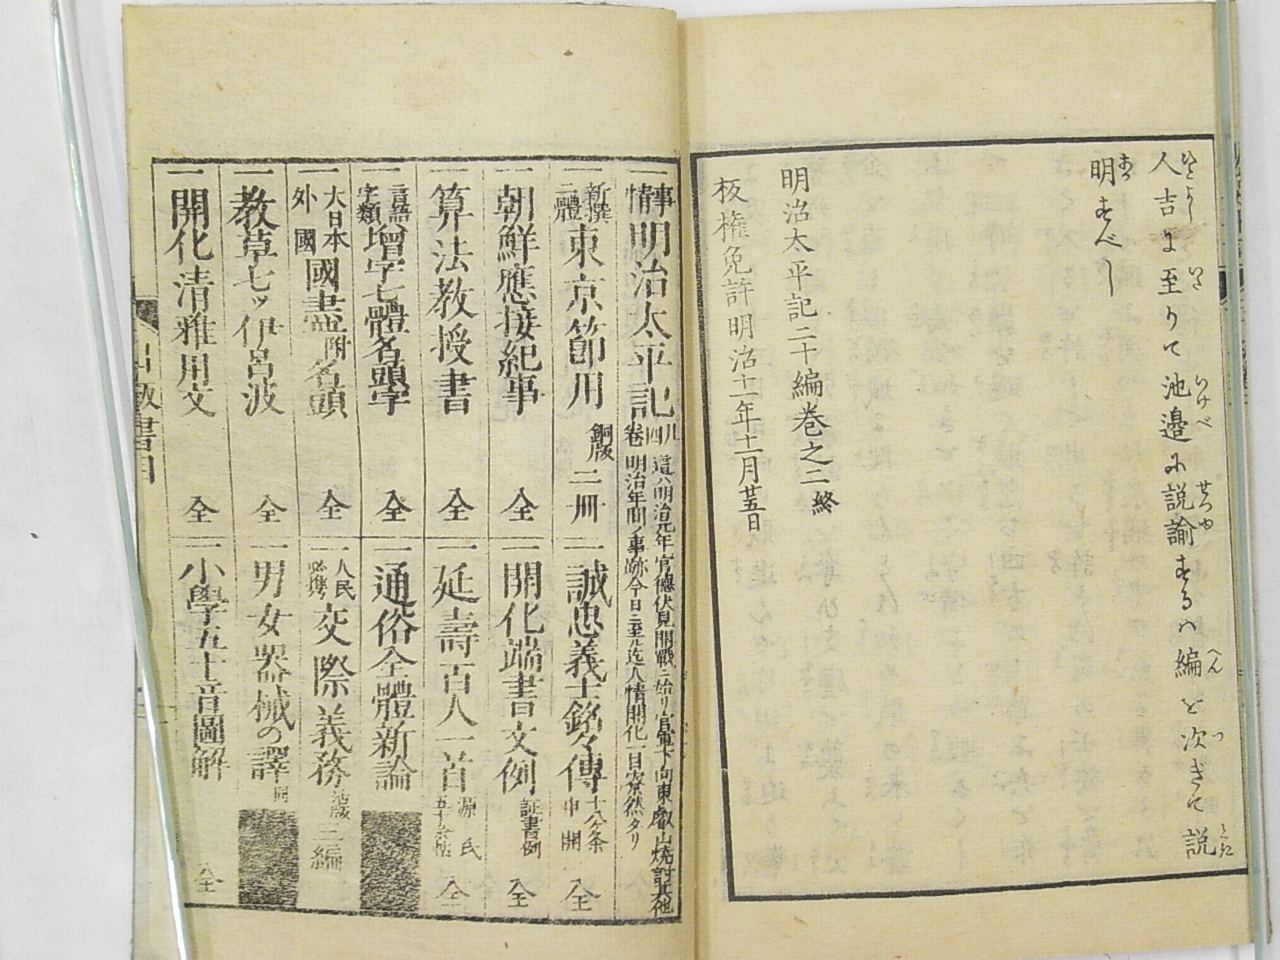 人吉に至りて池邉に説諭するハ編を次ぎて説
明すべし
明治太平記二十編巻之二終
板権免許明治十一年十二月廿五日
事情明治太平記
四卷
這ハ明治元年官德伏見開戰ニ始リ官軍下向東叡山燒討其他
明治年間ノ事跡今日ニ至ル迄人情開化一目瞭然タリ
一新撰二體東京節用 銅版 二冊
一誠忠義士銘々傳 十八ケ条申開 全
一朝鮮應接紀事 全
一開化端書文例 証書例 全
一算法教授書 全
一延壽百人一首 源氏 全
一言語字類增字七體名頭字 全
一通俗全體新論
一大日本外國國盡附名頭 全
一人民必携交際義務 二編
一教草七ッ伊呂波 全
一男女器械の譯
一開化清雅用文 全
一小學五十音圖解 全